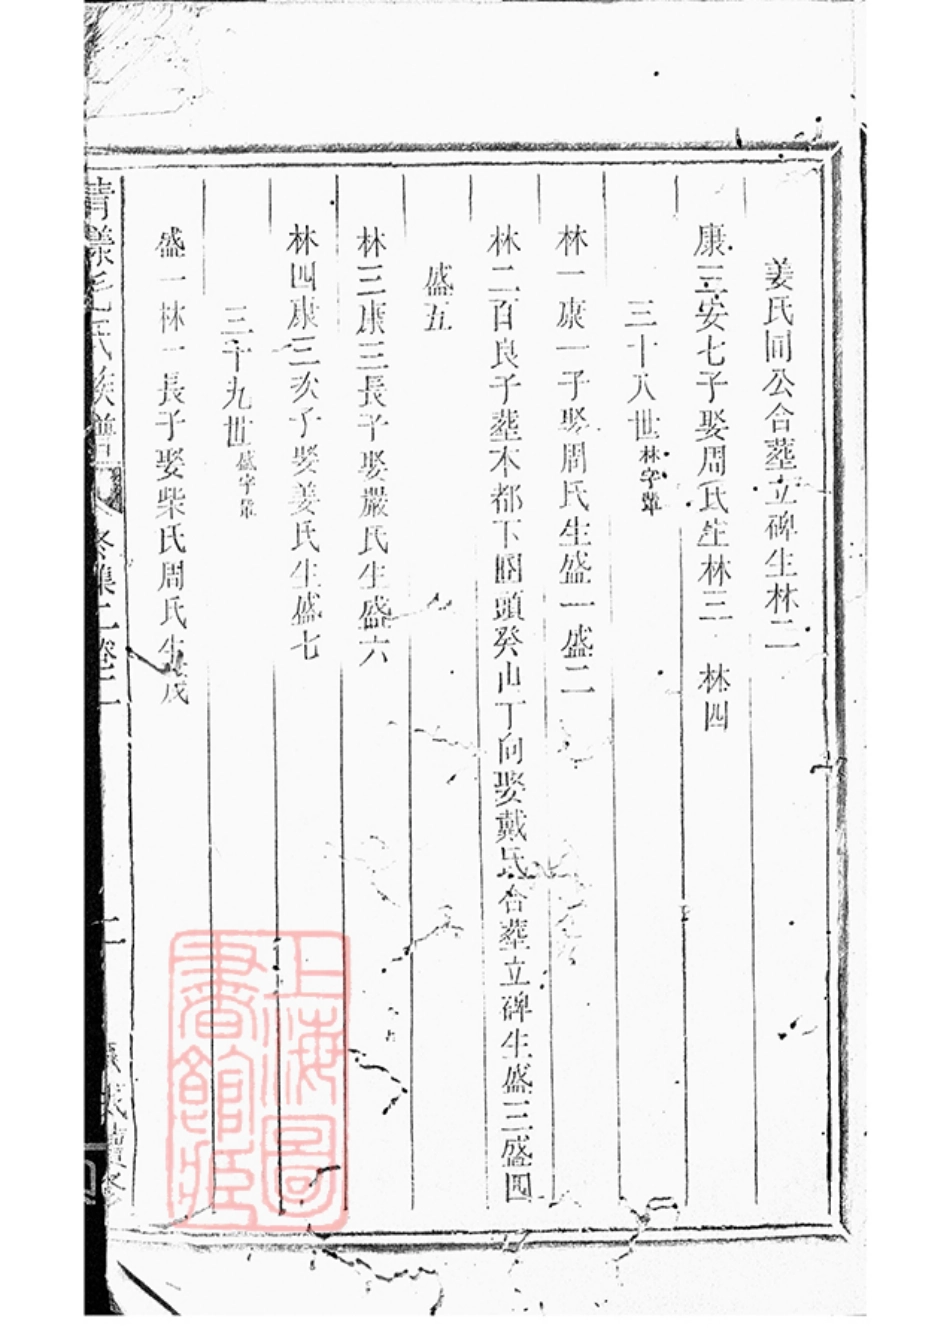 姜氏同公合塟立碑生林二
康三安七子娶周氏生林三 林四
三十八世林字輩
林一康一子娶周氏生盛一盛二
林二百良子塟本都下囼頭癸山丁向娶戴氏合塟立碑生盛三盛四
盛五
林三康三長子娶嚴氏生盛六
林四康三次子娶姜氏生盛七
三十九世盛字輩
盛一林一長子娶柴氏周氏生茂
清漾毛氏族譜
冬集二卷二
二
上海圖
書館藏